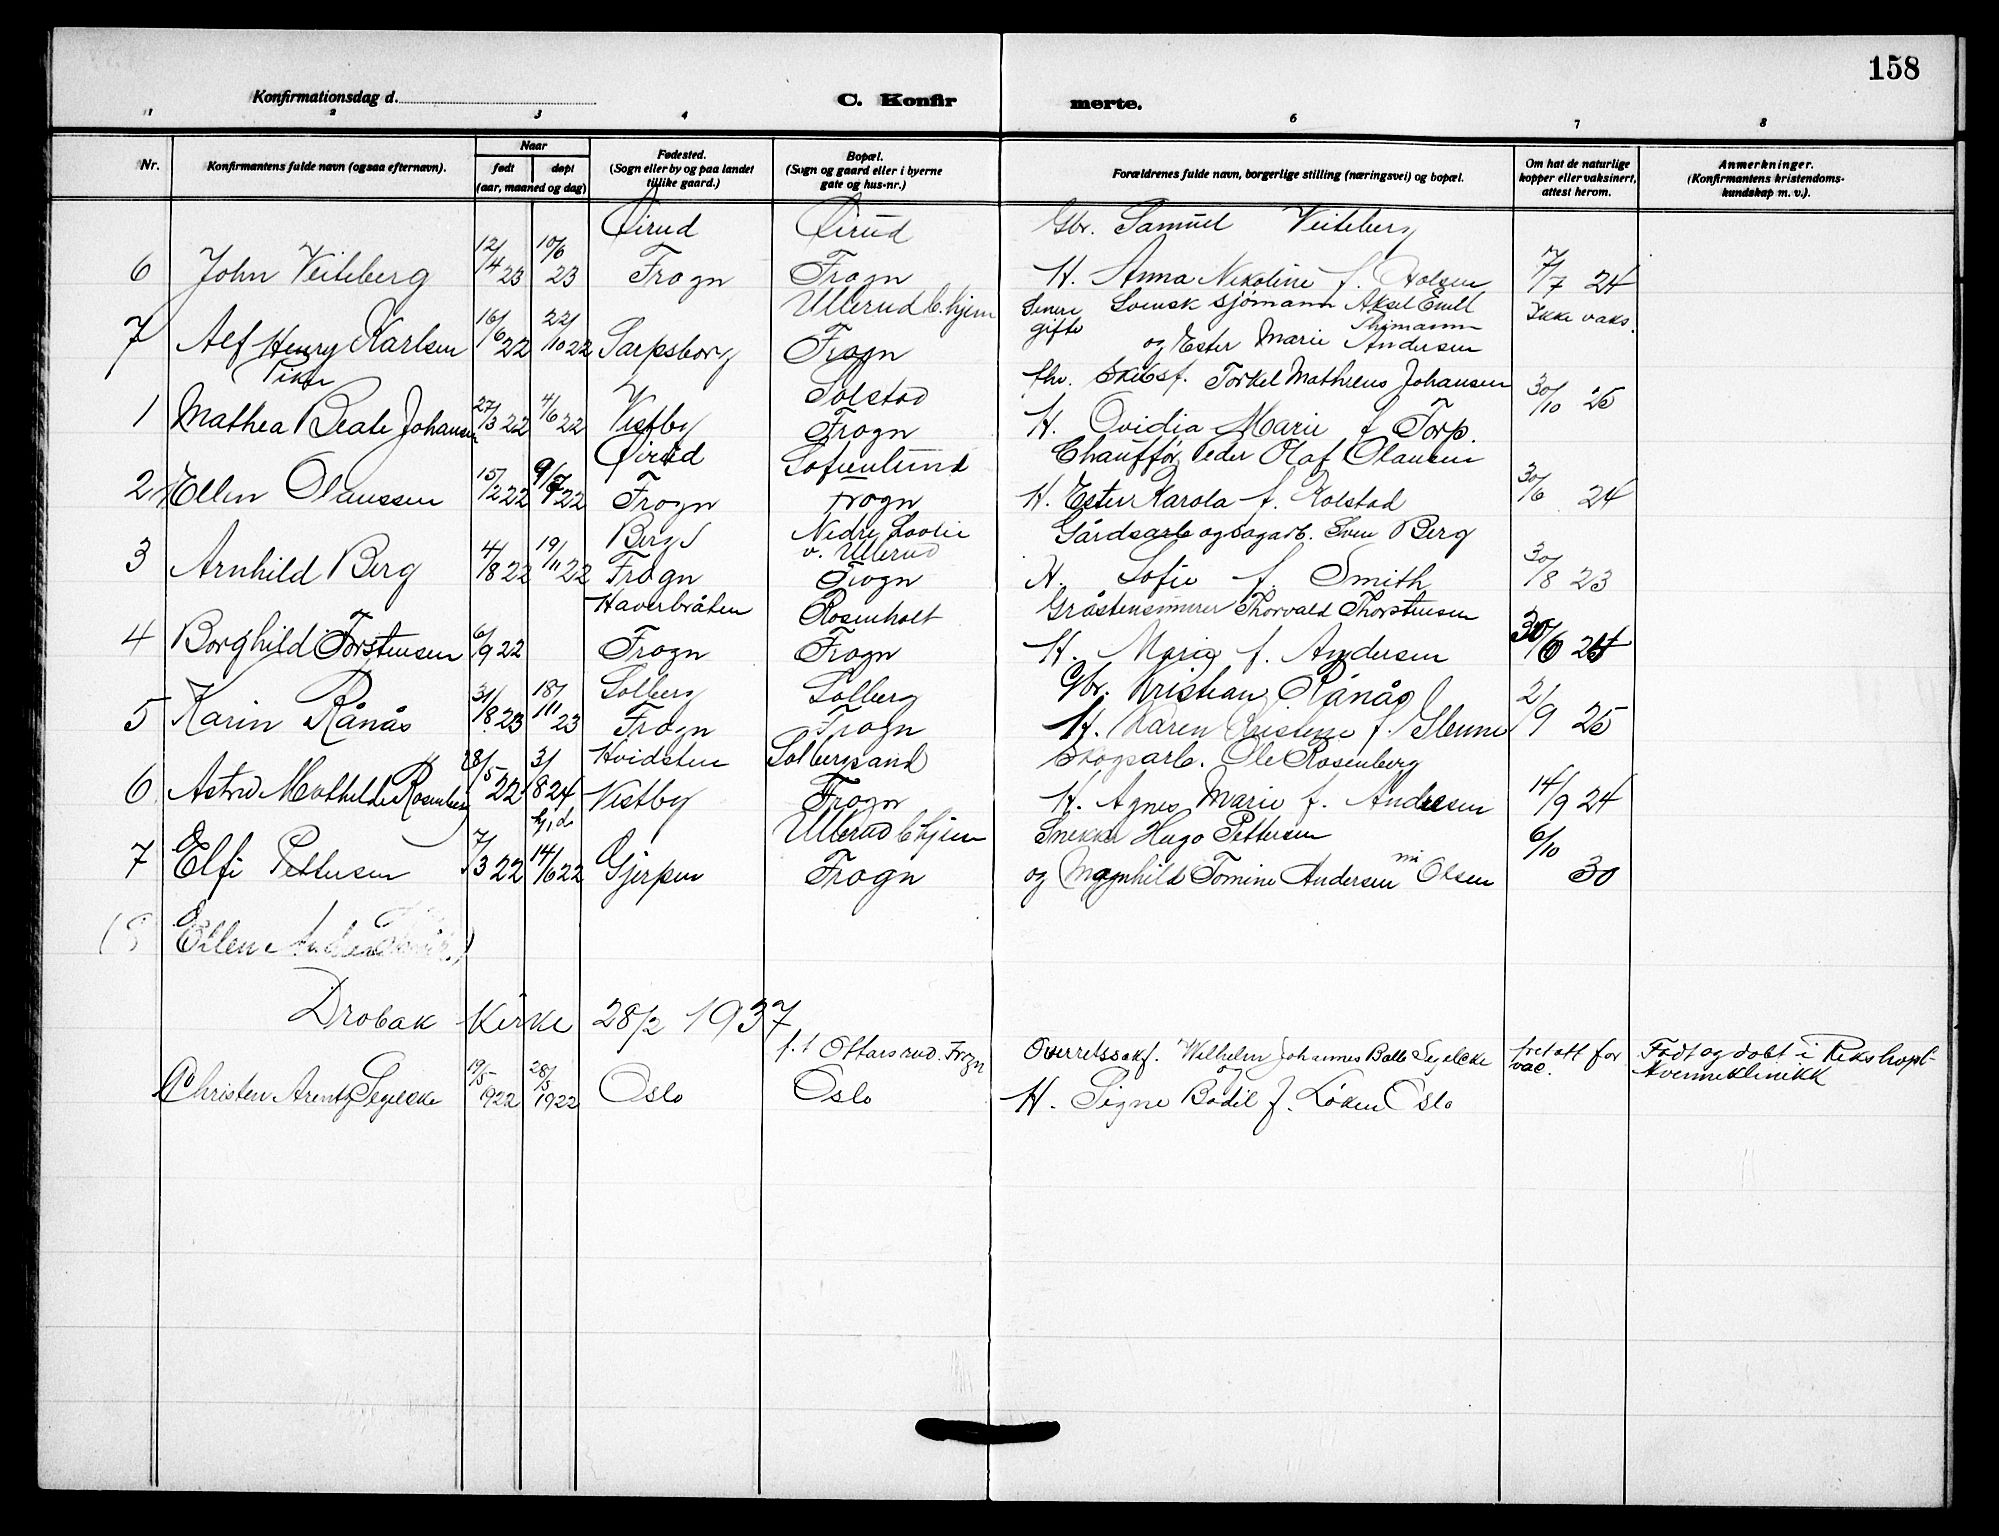 158
Konfirmationsdag d.
C. Konfirmerte.
1 2 3 4 6 7 8
Nr.
Konfirmantens fulde navn (ogsaa efternavn).
Naar
født døpt
(aar, maaned og dag)
Fødested.
(Sogn eller by og paa landet
tillike gaard.)
Bopæl.
(Sogn og gaard eller i byerne
gate og hus-nr.)
Forældrenes fulde navn, borgerlige stilling (næringsvei) og bopæl.
Om hat de naturlige
kopper eller vaksinert,
attest herom.
Anmerkninger.
(Konfirmantens kristendoms-
kundskap m. v.).
Øirud Øirud Gbr. Samuel Veiteberg
6 John Veiteberg 12/4 23 10/6 23 Frogn Frogn H. Anna Nikoline f. Holsen 7/7 24
Ullerud b.hjem Senere gifte Svensk sjømann Aksel Emil Ikke vaks.
7 Alf Henry Karlsen 16/6 22 22/10 22 Sarpsborg Frogn og Ester Marie Andersen
Piker
Solstad fhv. Skibsf. Torkel Matheus Johansen
1 Mathea Beate Johansen 27/3 22 4/6 22 Vestby Frogn H. Ovidia Marie f. Torp. 30/10 25
Øirud Sofienlund Chauffør Peder Olaf Olausen
2 Ellen Olaussen 15/2 22 9/7 22 Frogn Frogn H. Ester Karola f. Kolstad 30/6 24
Berg Nedre v. Ullerud Gårdsarb og sagarb. Sven Berg
3 Arnhild Berg 4/8 22 19/11 22 Frogn Frogn H. Sofie f. Smith 30/8 23
Haverbråten Rosenholt Gråstensmurer Thorvald Thorstensen
4 Borghild Torstensen 6/9 22 Frogn Frogn H. Maria f. Andersen 30/6 24
Solberg Solberg Gbr. Kristian Rånås
5 Karin Rånås 31/8 23 18/11 23 Frogn Frogn H. Karen Kristine f. 2/9 25
Hvidsten Solbergsand Skogsarb. Ole Rosenberg
6 Astrid Mathilde Rosenberg 28/5 22 3/8 24 Vestby Frogn H. Agnes Marie f. Andresen 14/9 24
hj.d. Ullerud b.hjem Snekker Hugo Pettersen
7 Elfi Pettersen 7/3 22 14/6 22 Gjerpen Frogn og Magnhild Tomine Andersen nu Olsen 6/10 30
Ellen
Drøbak Kirke 28/2 1937
f.t Ottarsrud. Frogn Overretssakf. Wilhelm Johannes Balle Segelcke
Christen Arentz Segelcke 19/5 1922 28/5 1922 Oslo Oslo og H. Signe Bodil f. Løken Oslo
attest for vac.
Født og døbt i Rikshopt
Kvinneklinikk